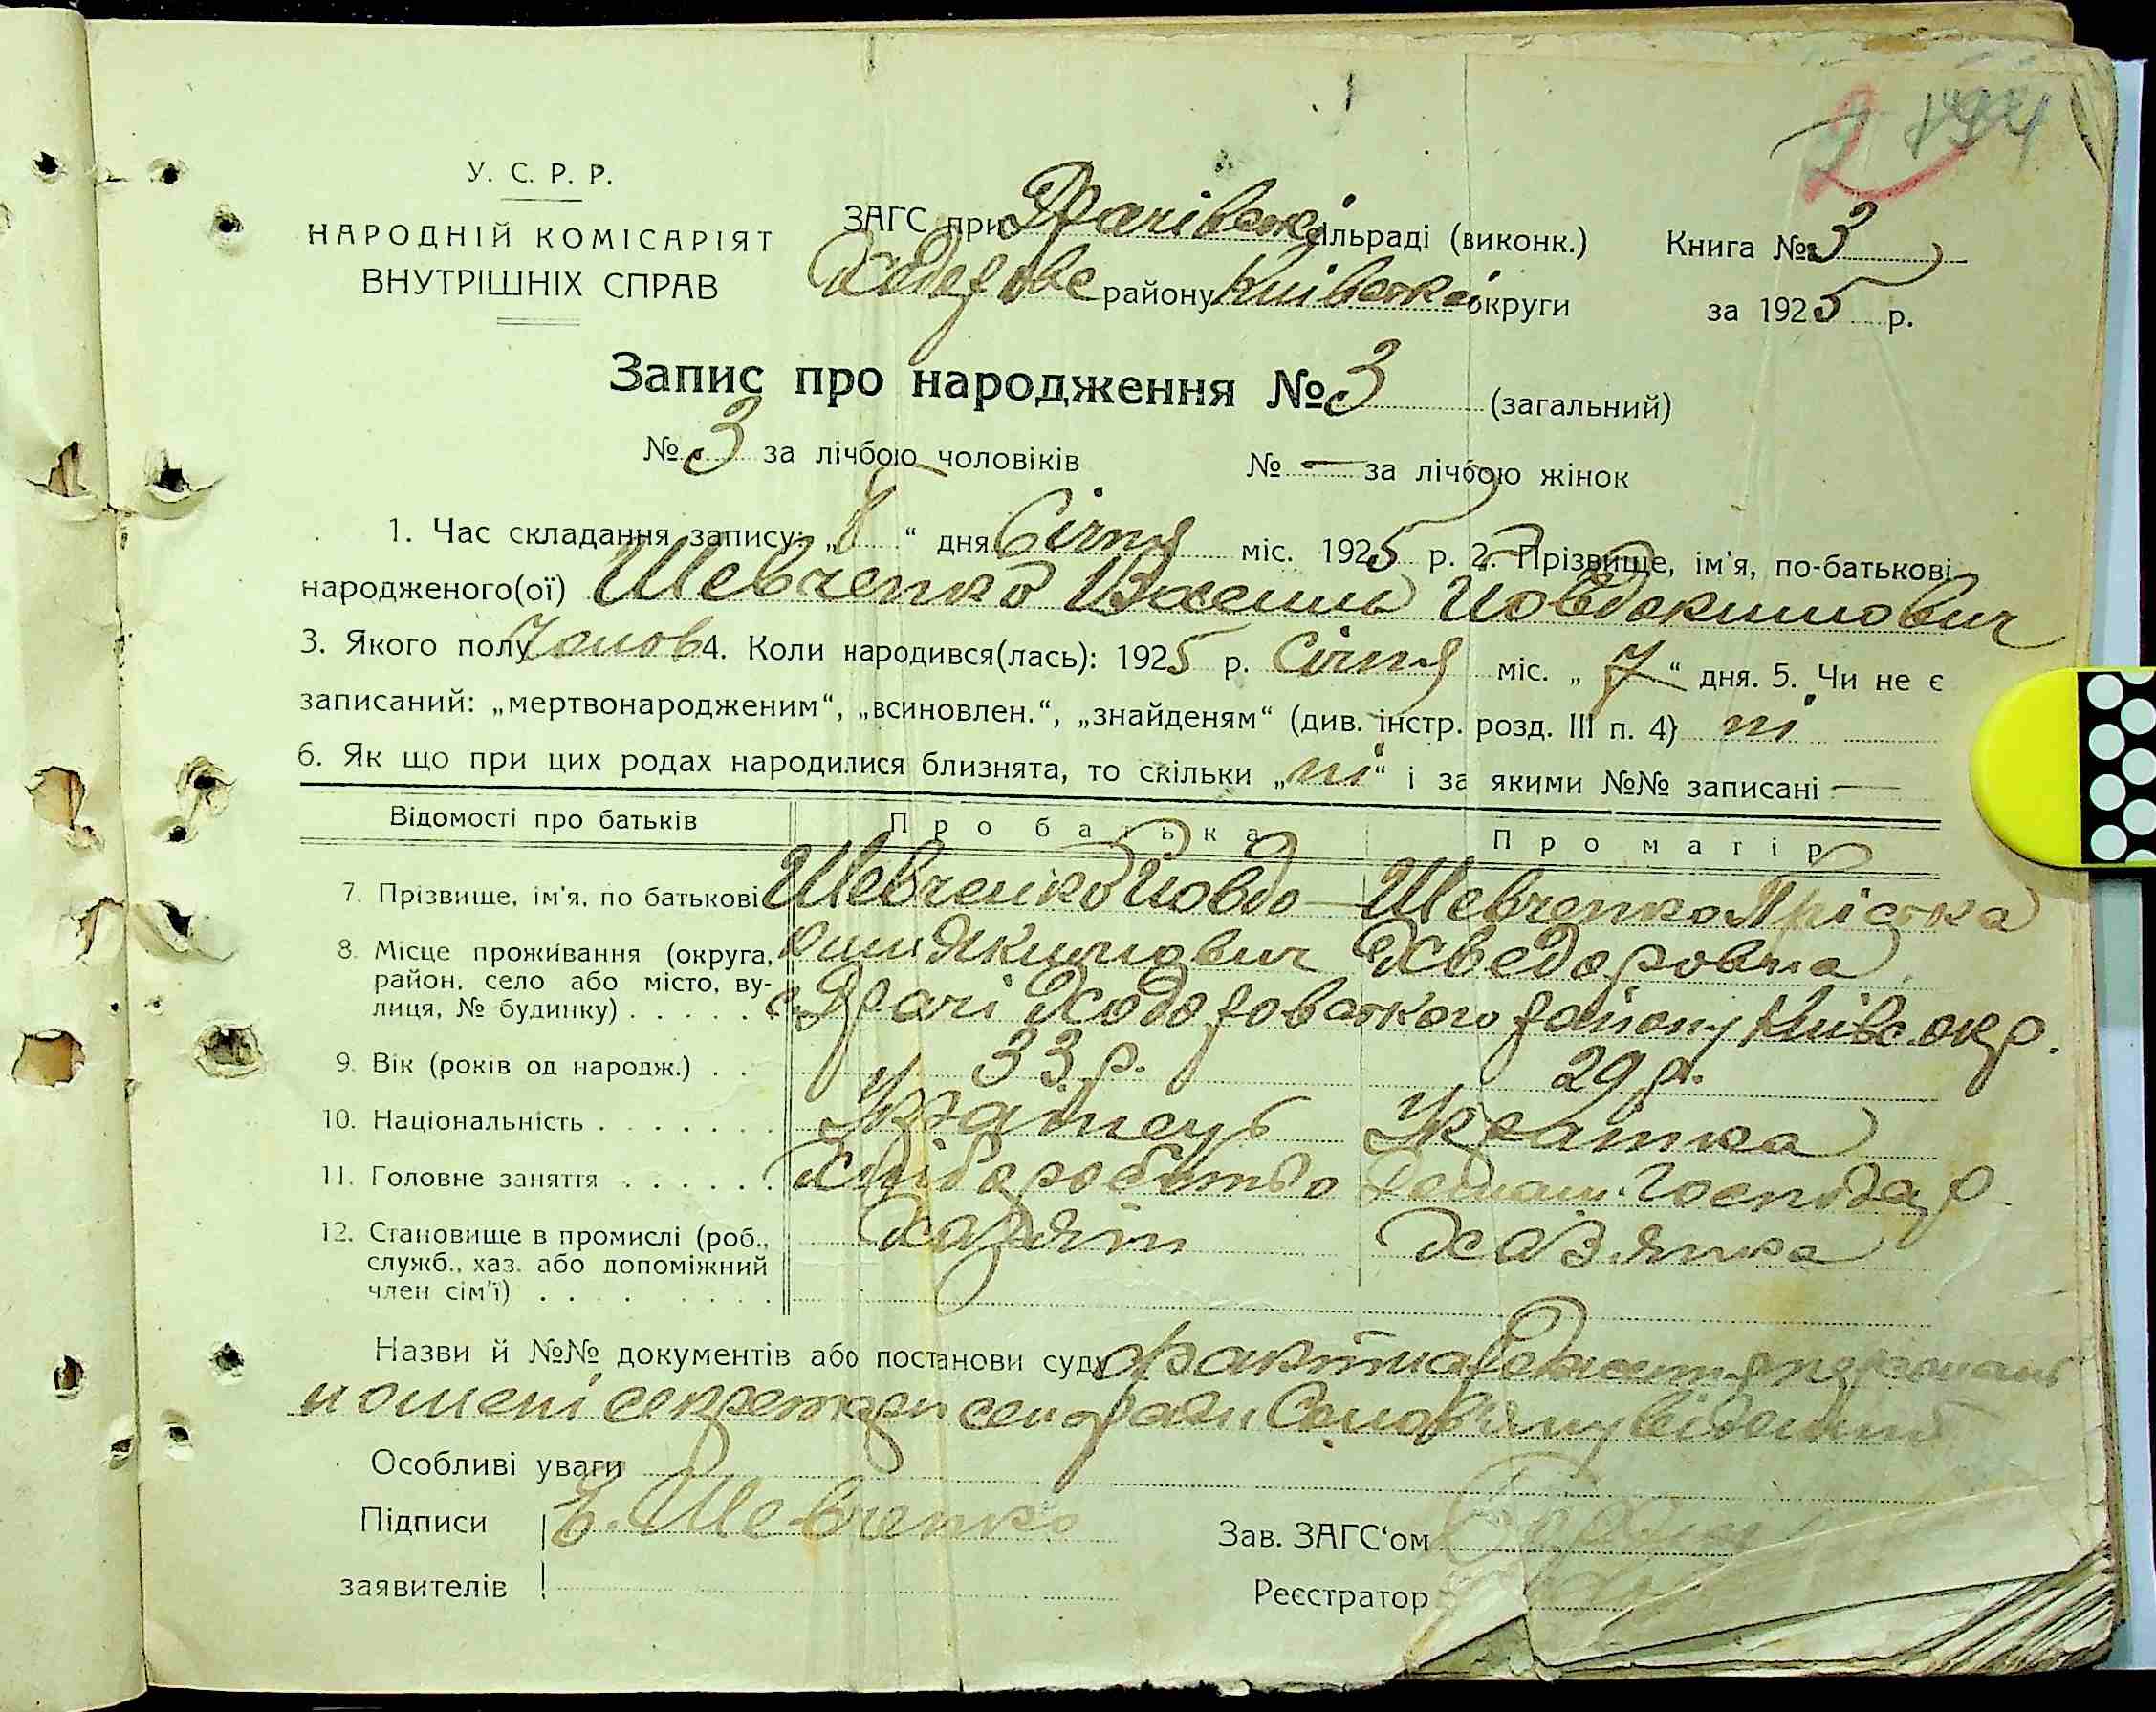 2 194
У. С. Р. Р.
НАРОДНІЙ КОМІСАРІЯТ
ВНУТРІШНІХ СПРАВ
ЗАГС при Драчівській сільраді (виконк.) Книга № 3
району Київської округи за 1925 р.
Запис про народження № 3 (загальний)
№ 3 за лічбою чоловіків № — за лічбою жінок
1. Час складання запису: „8“ дня Січня міс. 1925 р. 2. Прізвище, ім'я, по-батькові
народженого(ої) Шевченко Василь Йовдокимович
3. Якого полу Чолов 4. Коли народився(лась): 1925 р. Січня міс. „7“ дня. 5. Чи не є
записаний: „мертвонародженим“, „всиновлен.“, „знайденям“ (див. інстр. розд. III п. 4) ні
6. Як що при цих родах народилися близнята, то скільки „ні“ і за якими №№ записані —
Відомості про батьків Про батька Про матір
7. Прізвище, ім'я, по батькові Шевченко Йовдо- Шевченко Пріська
8. Місце проживання (округа, ким Якимович Хведоровна
район, село або місто, ву-
лиця, № будинку) . . . . . с. Драчі Ходоровского району Київс. окр.
9. Вік (років од народж.) . . 33 р. 29 р.
10. Національність . . . . . . . Українець Українка
11. Головне заняття . . . . . . Хліборобство Домаш. Господар
12. Становище в промислі (роб., Хазяїн Хазянка
служб., хаз. або допоміжний
член сім'ї) . . . . . . . .
Назви й №№ документів або постанови суду
секретарь
Особливі уваги
Підписи Є. Шевченко Зав. ЗАГС'ом
заявителів Реєстратор